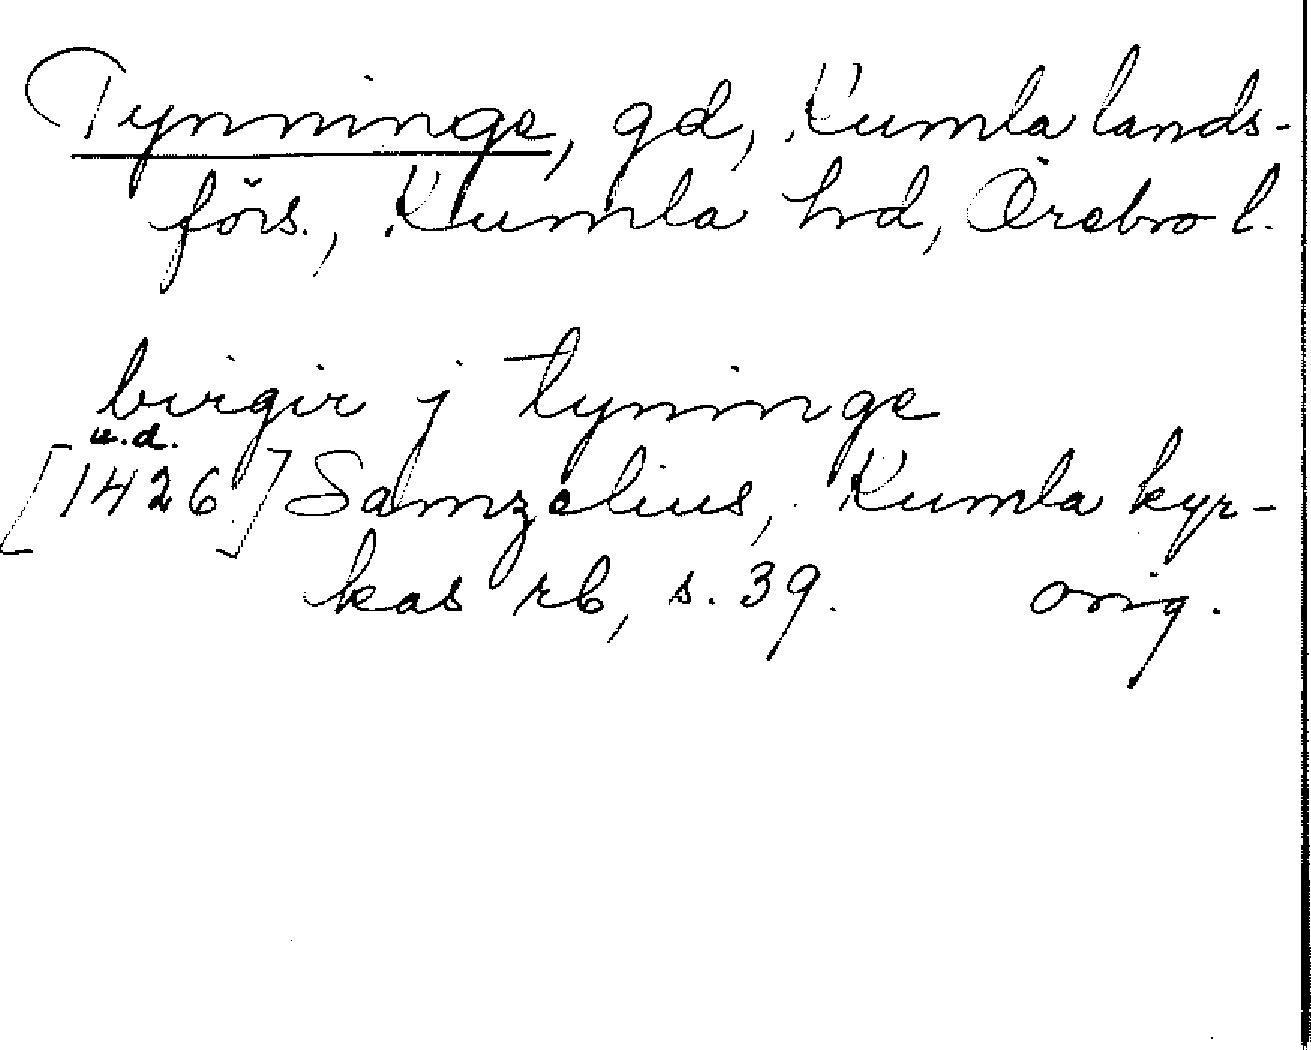 Tynninge, gd, Kumla lands-
förs., Kumla hd, Örebro l.
birgir j tyninge
u.d.
[1426] Samzelius, Kumla kyr-
kas rb, s. 39. orig.